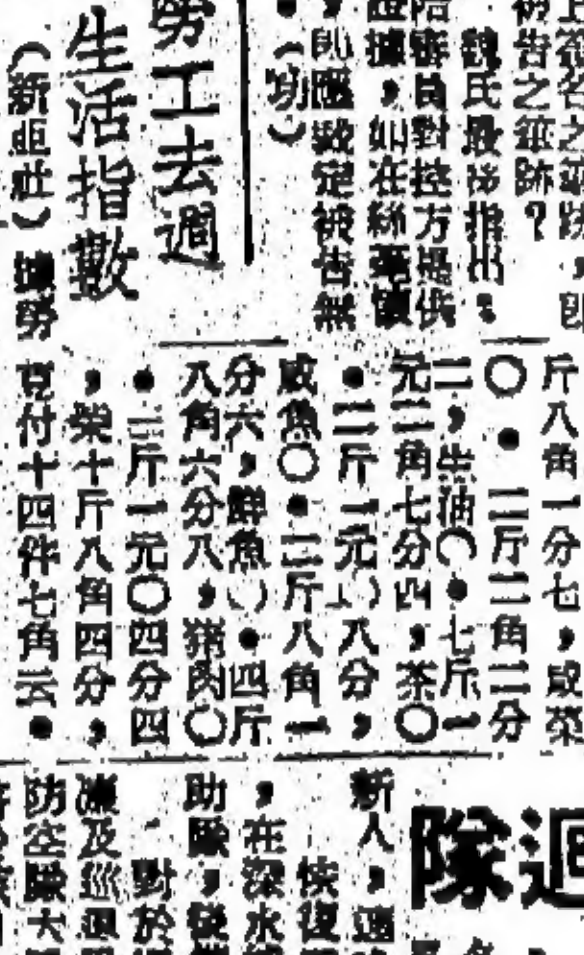 上簽名之筆跡，即
被告之筆跡？
魏氏最後指出：
陪審員對控方提供
證據，如在絲毫懷
，則應裁定被告無
●（功）
勞工去週
生活指數
（新亞社）據勞
斤八角一分七，咸菜
〇●二斤二角二分
二，生油〇●七斤一
元二角七分四，茶〇
●二斤一元〇八分，
咸魚〇●二斤八角一
分六，鮮魚〇●四斤
八角六分八，豬肉〇
●三斤一元〇四分四
，柴十斤八角四分，
竟付十四件七角云●
迴
隊
新人，
恢復
，在深水
助隊，
對於
及巡迴
防空隊大